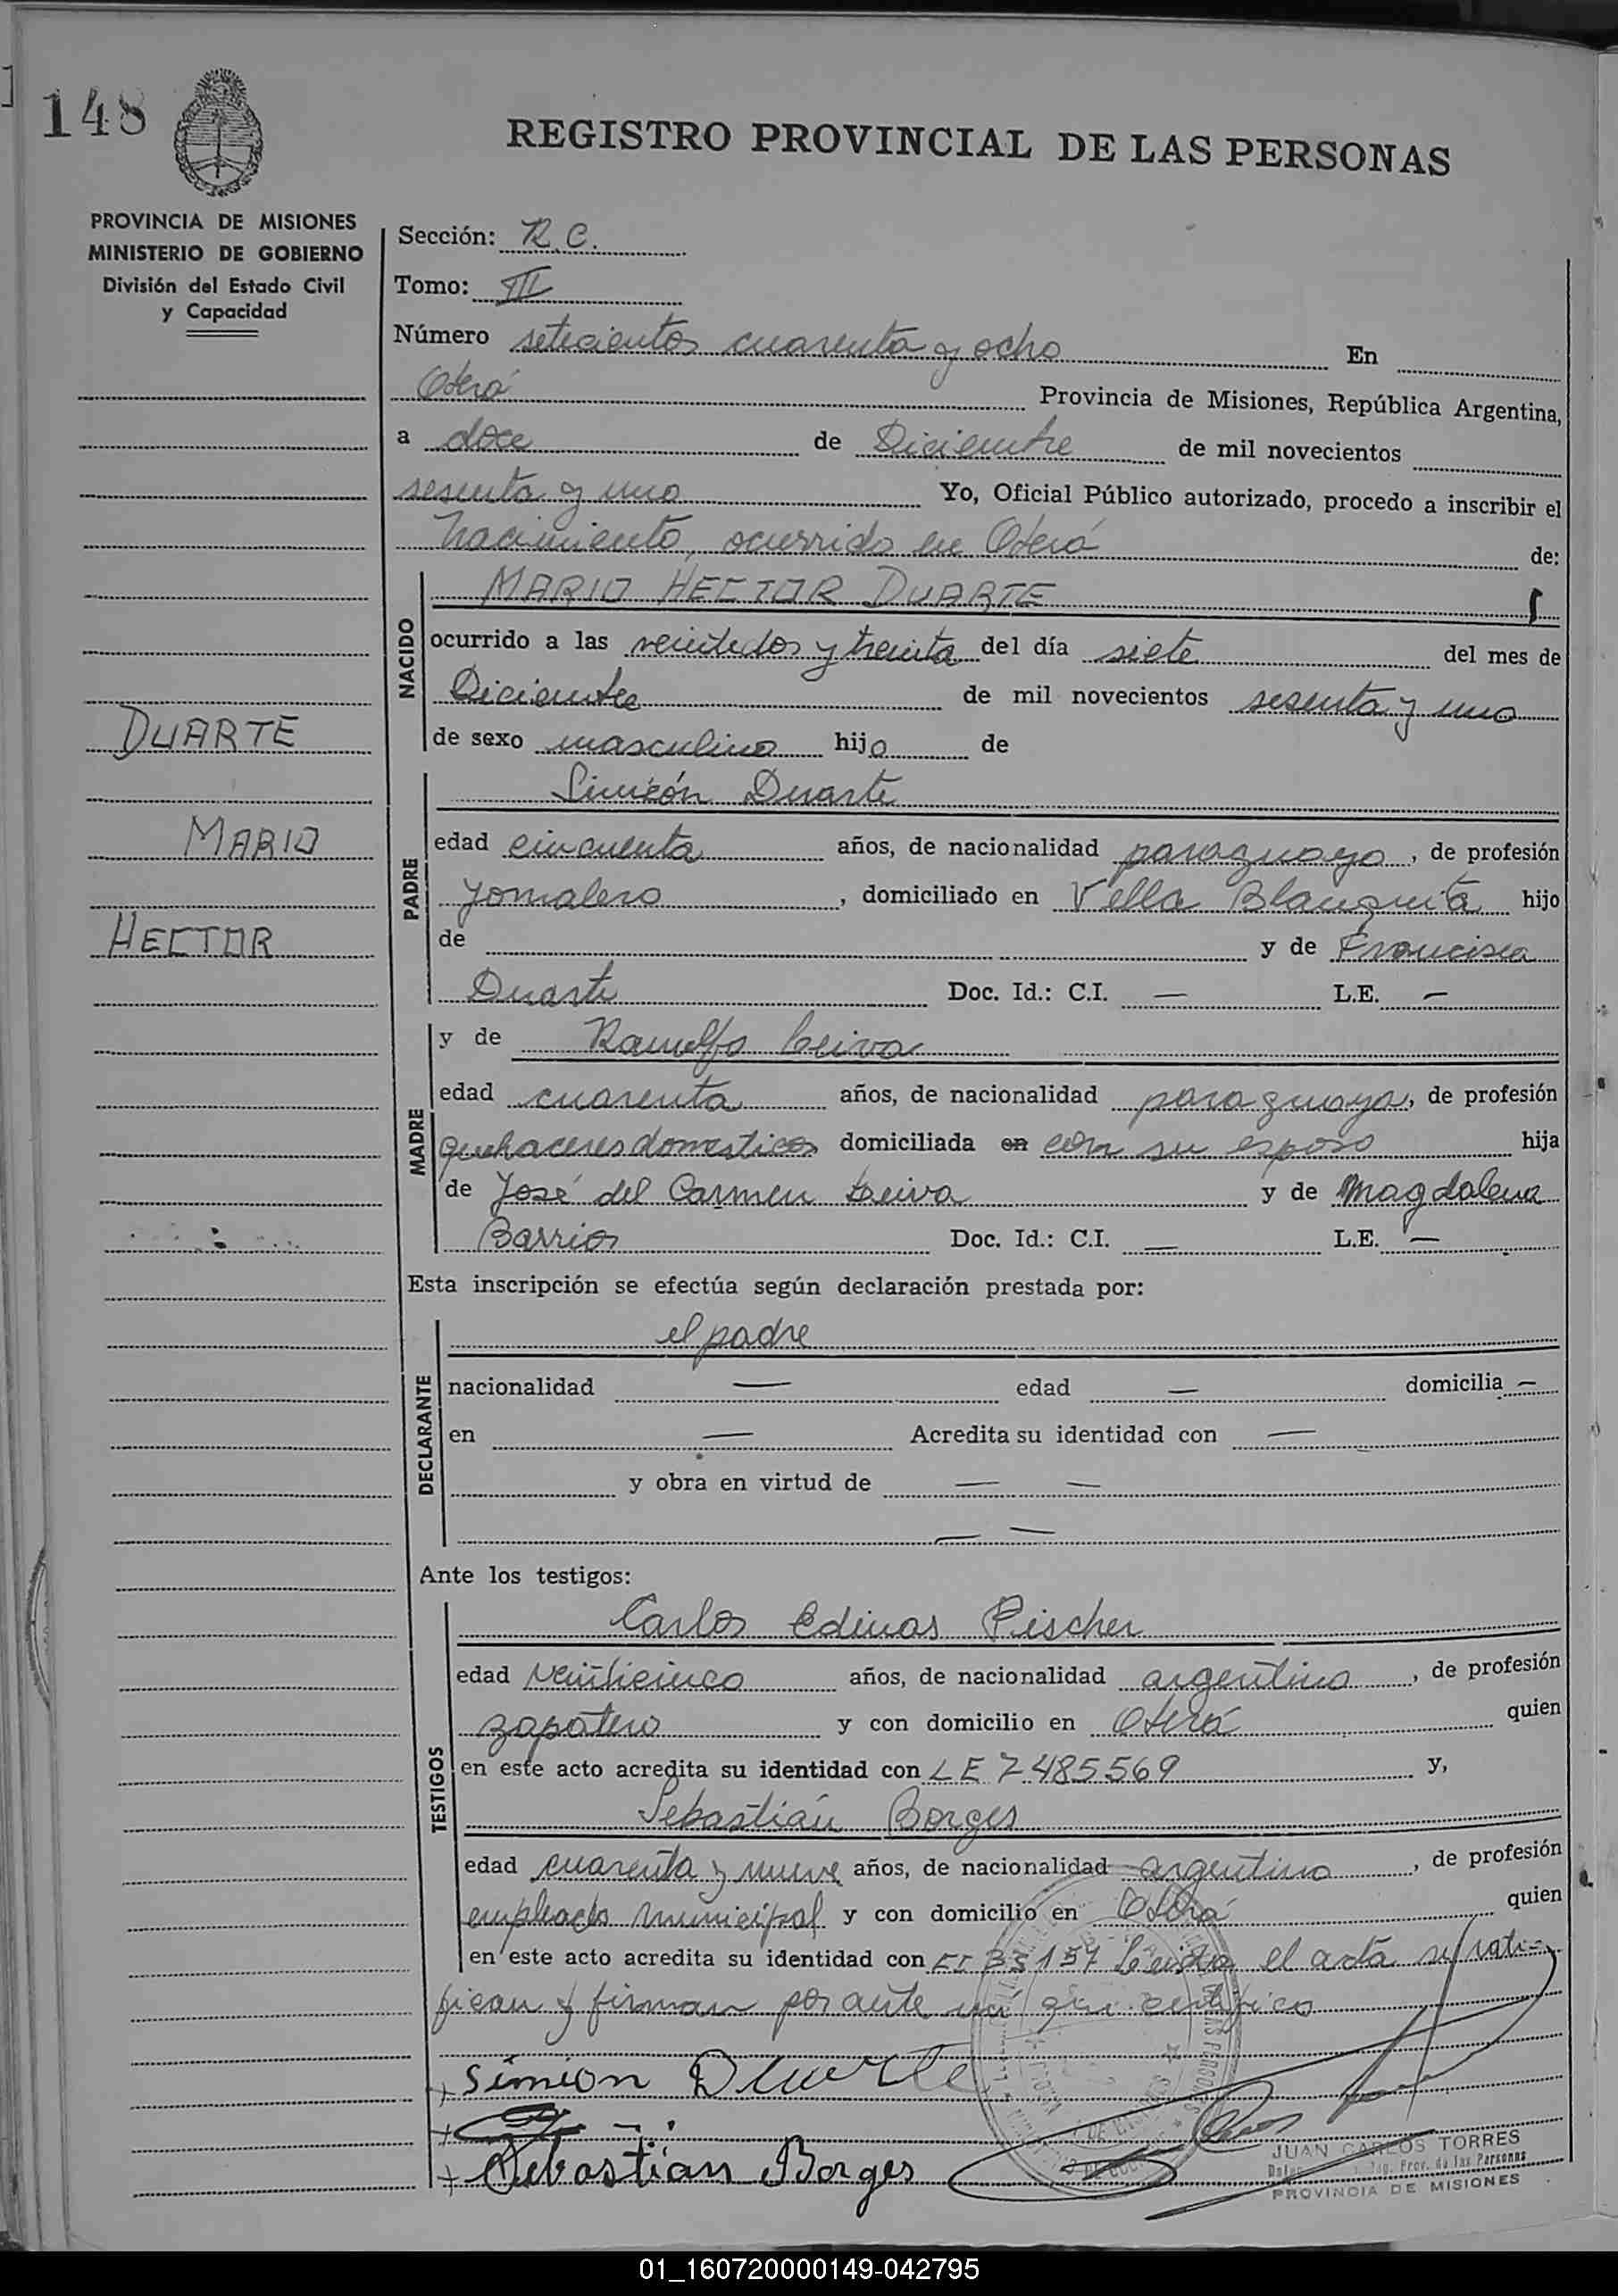 148
REGISTRO PROVINCIAL DE LAS PERSONAS
PROVINCIA DE MISIONES
MINISTERIO DE GOBIERNO
División del Estado Civil
y Capacidad
Sección: R.C.
Tomo: III
Número setecientos cuarenta y ocho En
Oberá Provincia de Misiones, República Argentina,
a doce de Diciembre de mil novecientos
sesenta y uno Yo, Oficial Público autorizado, procedo a inscribir el
Nacimiento, ocurrido en Oberá de:
NACIDO
MARIO HECTOR DUARTE
ocurrido a las veintedos y treinta del día siete del mes de
Diciembre de mil novecientos sesenta y uno
de sexo masculino hijo de
DUARTE
MARIO
HECTOR
PADRE
Simeón Duarte
edad cincuenta años, de nacionalidad paraguayo, de profesión
jornalero, domiciliado en Villa Blanquita hijo
de y de Francisca
Duarte Doc. Id.: C.I. — L.E. —
MADRE
y de Ramulfa Leiva
edad cuarenta años, de nacionalidad paraguaya, de profesión
quehaceres domesticos domiciliada en con su esposo hija
de José del Carmen Leiva y de Magdalena
Barrios Doc. Id.: C.I. — L.E. —
Esta inscripción se efectúa según declaración prestada por:
DECLARANTE
el padre
nacionalidad — edad — domicilia —
en — Acredita su identidad con —
y obra en virtud de — —
— —
Ante los testigos:
TESTIGOS
Carlos Edinas Pischer
edad veinticinco años, de nacionalidad argentino, de profesión
zapatero y con domicilio en Oberá quien
en este acto acredita su identidad con LE 7485569 y,
Sebastián Borges
edad cuarenta y nueve años, de nacionalidad argentino, de profesión
empleado municipal y con domicilio en Oberá quien
en este acto acredita su identidad con CI 33157 Leida el acta se rati-
fican y firman por ante mí que certifico
simion Duarte
Sebastián Borges
JUAN CARLOS TORRES
Prov. de las Personas
PROVINCIA DE MISIONES
01_160720000149-042795